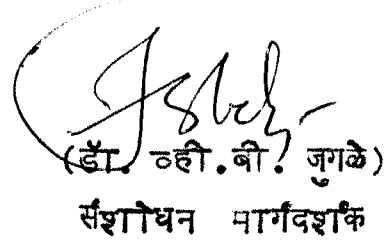 (डॉ. व्ही.बी. जुगळे)
संशोधन मार्गदर्शक